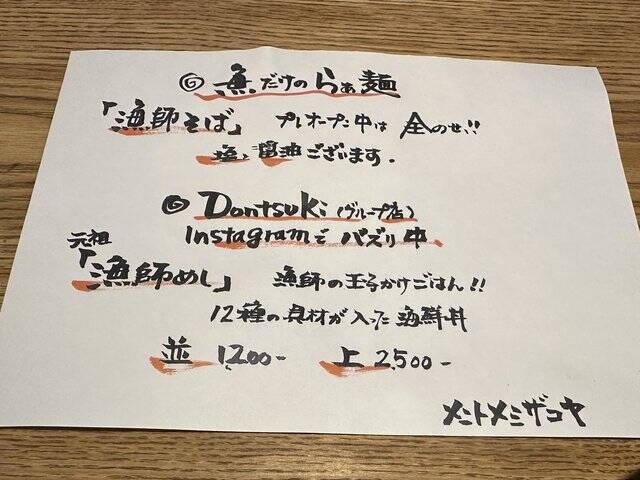 ◎ 魚だけのらぁ麺
「漁師そば」 プレオープン中は 全のせ!!
塩、醤油ございます.
◎ Dontsuki (グループ店)
Instagramで バズり中、
元祖
「漁師めし」 漁師の玉子かけごはん!!
12種の具材が入った海鮮丼
並 1,200- 上 2,500-
メントメシザコヤ